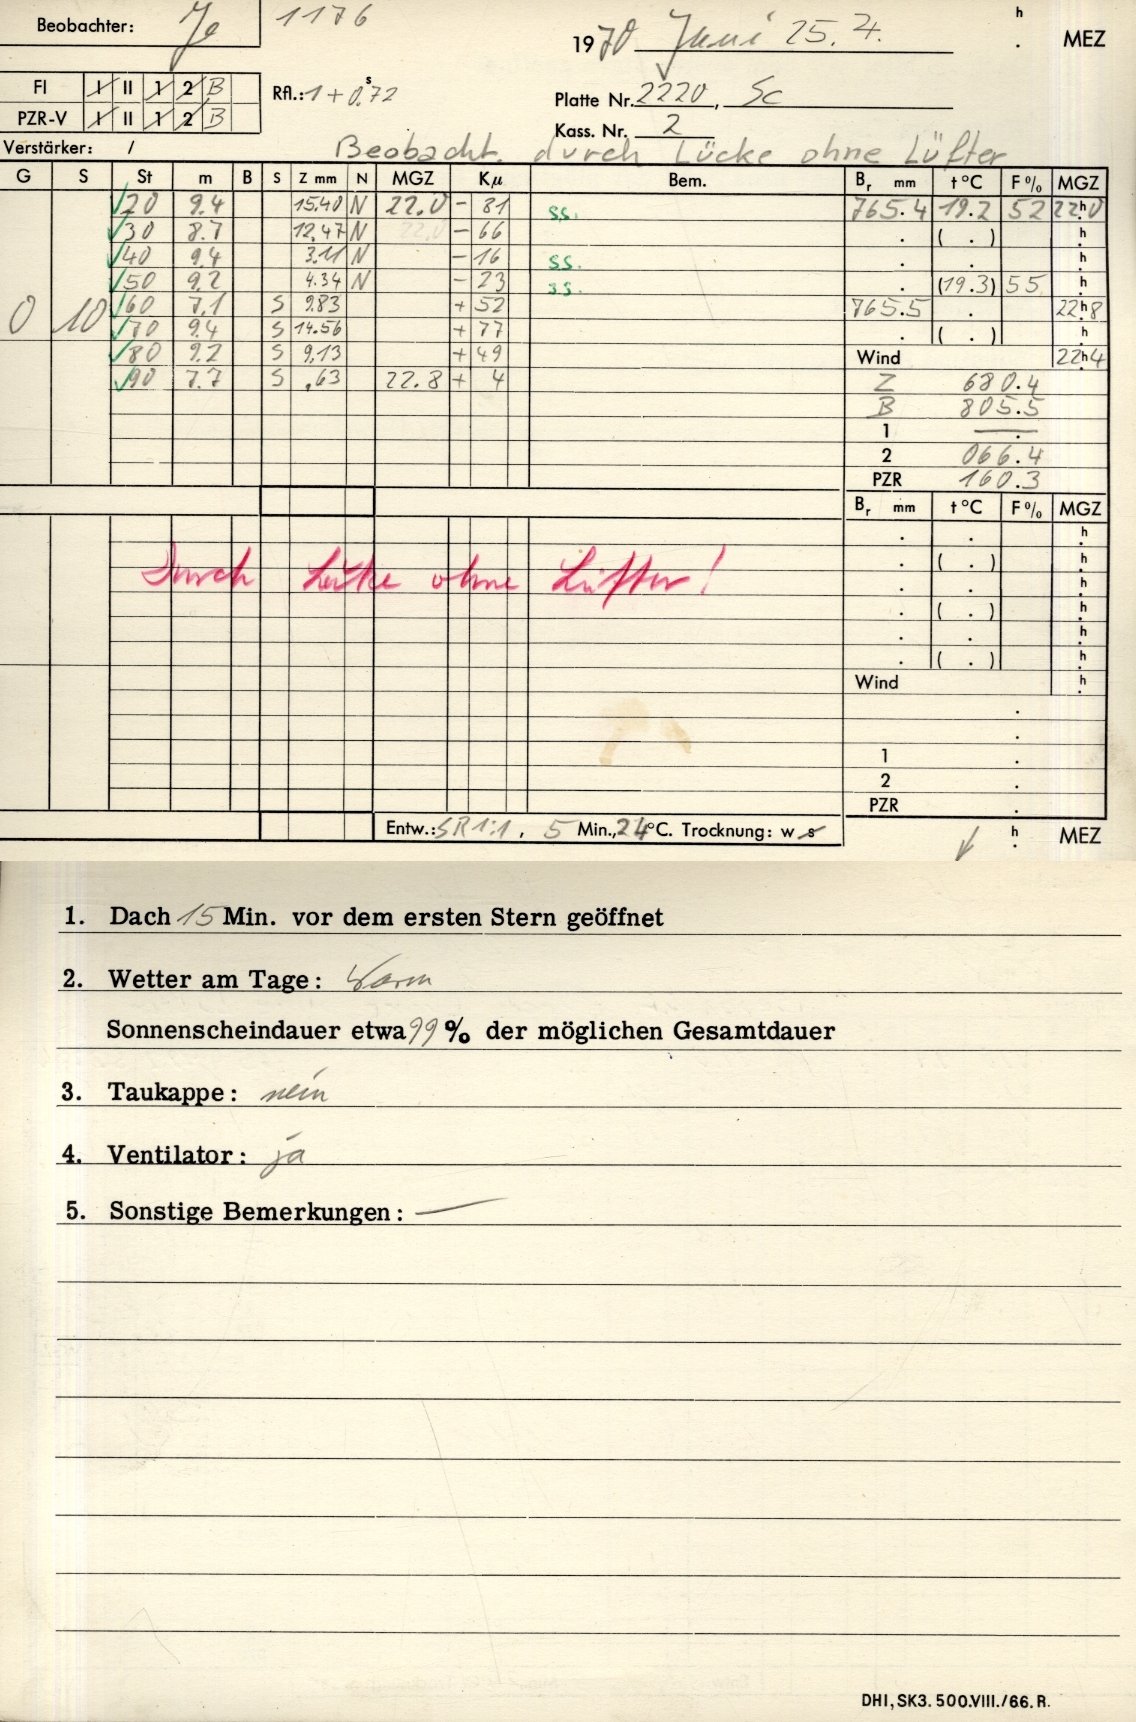 Beobachter: Je 1176
1970 Juni 25.7. h . MEZ
FI I II 1 2 B
Rfl.: 1 + 0.72 s
Platte Nr. 2220, Sc
PZR-V I II 1 2 B
Kass. Nr. 2
Verstärker: /
Beobacht. durch Lücke ohne Lüfter
G S St m B S Z mm N MGZ Kμ Bem. Br mm t °C F % MGZ
20 9.4 15.40 N 22.0 - 81 ss. 765.4 19.2 52 22h0
30 8.7 12.47 N 22.0 - 66 . ( . ) h
40 9.4 3.11 N - 16 ss. . . h
50 9.2 4.34 N - 23 ss. . (19.3) 55 h
0 10 60 7.1 S 9.83 + 52 765.5 . 22h8
70 9.4 S 14.56 + 77 . ( . ) h
80 9.2 S 9.13 + 49 Wind 22h4
90 7.7 S .63 22.8 + 4 Z 680.4
B 805.5
1 — .
2 066.4
PZR 160.3
Br mm t °C F % MGZ
. . h
Durch Lücke ohne Lüfter! . ( . ) h
. . h
. ( . ) h
. . h
. ( . ) h
Wind h
.
.
1 .
2 .
PZR .
Entw.: SR 1:1, 5 Min., 24 °C. Trocknung: w s
h . MEZ
1. Dach 15 Min. vor dem ersten Stern geöffnet
2. Wetter am Tage: Warm
Sonnenscheindauer etwa 99 % der möglichen Gesamtdauer
3. Taukappe: nein
4. Ventilator: ja
5. Sonstige Bemerkungen: —
DHI, SK3. 500.VIII./66. R.